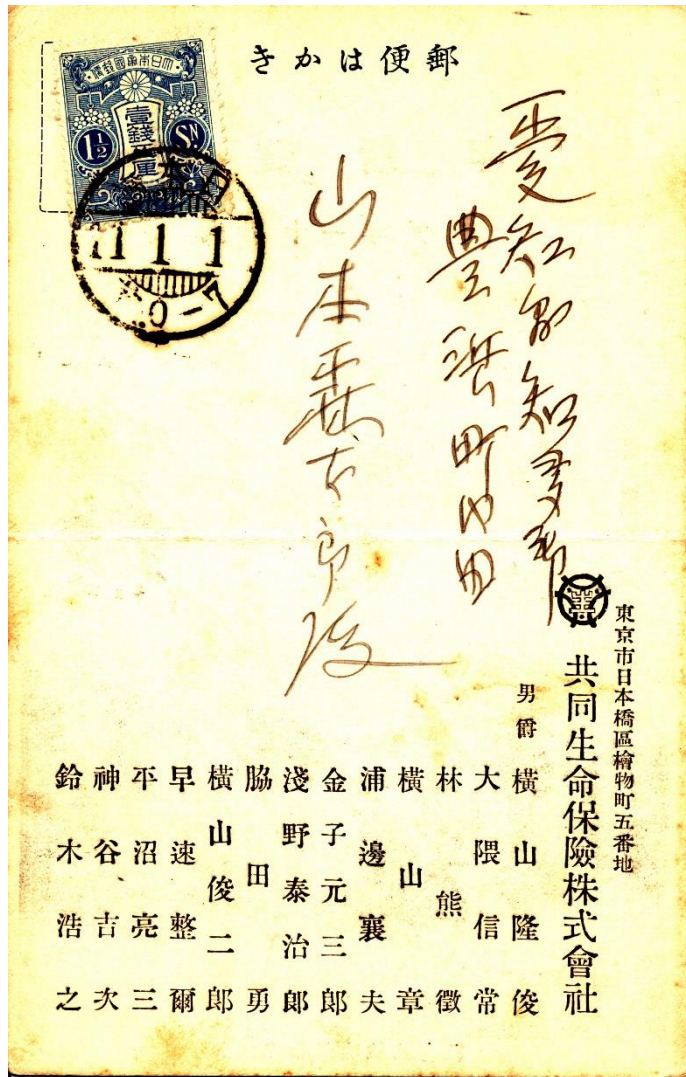 郵便はかき
大日本帝國郵便
壹錢五厘
1½ Sɴ
11 1 1
0-7
愛知県知多郡
豊浜町中田
山本
郎殿
東京市日本橋區檜物町五番地
共同生命保險株式會社
男爵 橫山隆俊
大隈信常
林熊徵
橫山章
浦邊襄夫
金子元三郎
淺野泰治郎
脇田勇
橫山俊二郎
早速整爾
平沼亮三
神谷吉次
鈴木浩之